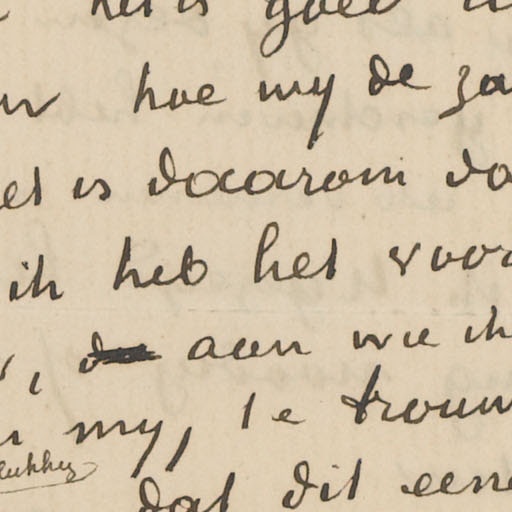 het is goed
hoe my de za
et is daarom da
ik heb het voor
, aan wie ik
my, te trouw
lukkig
dat dit eene